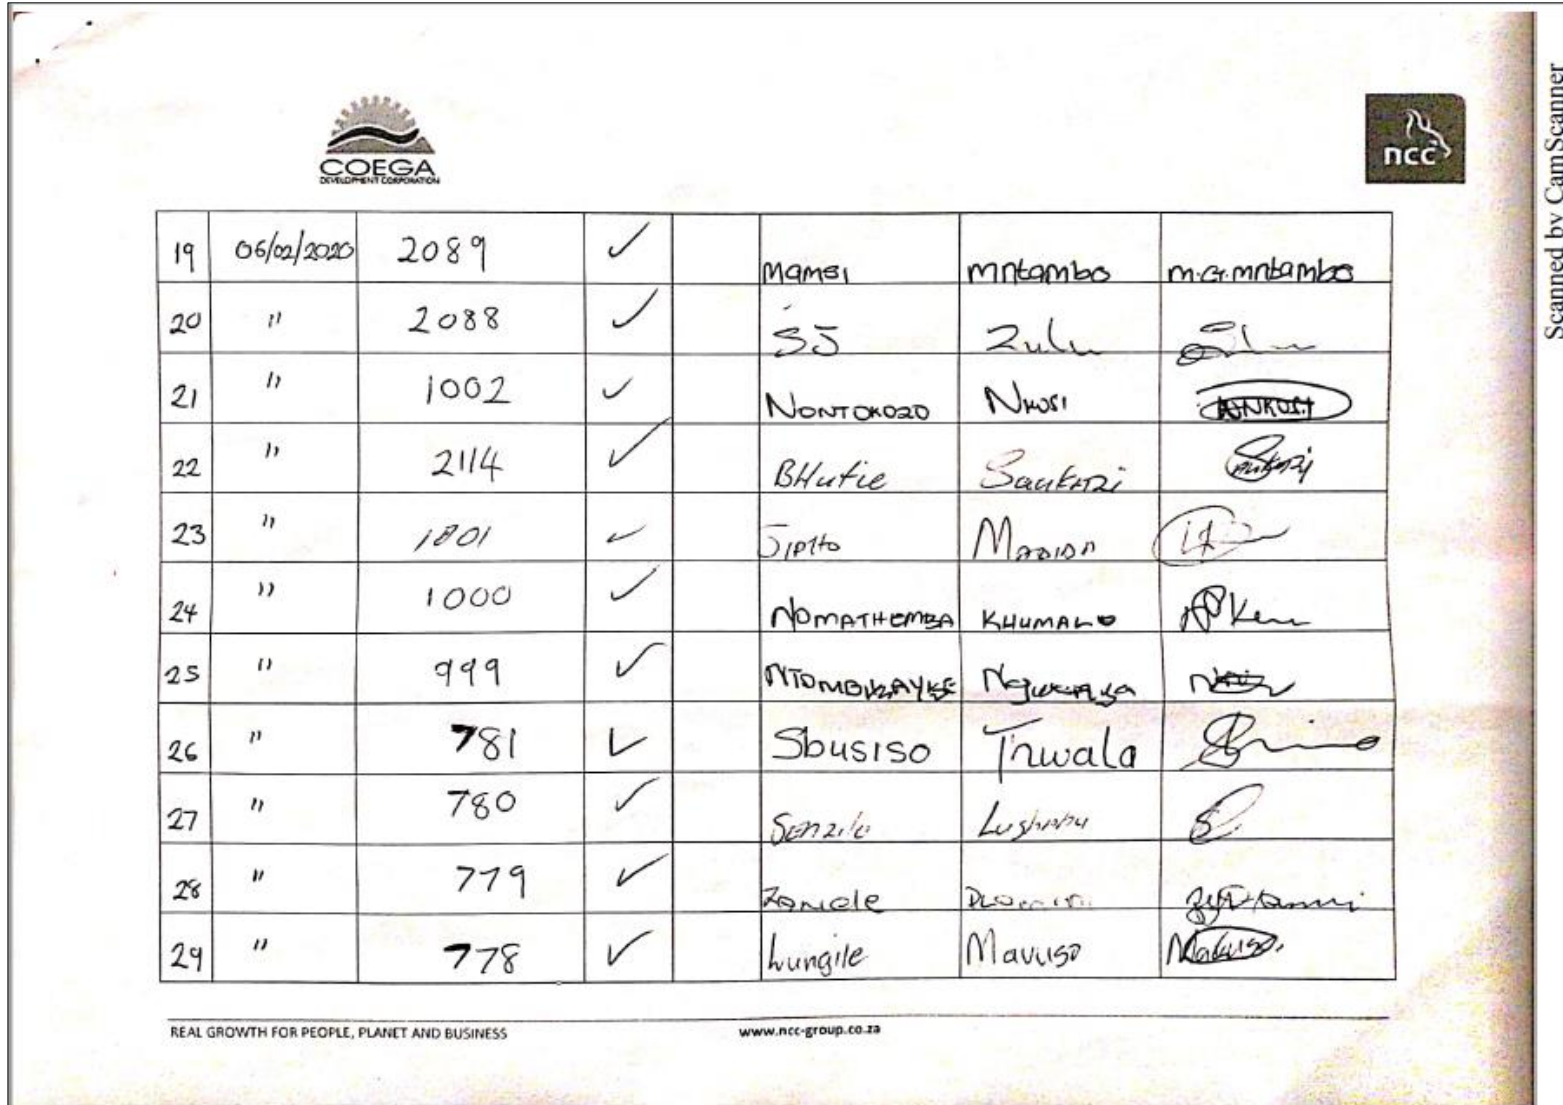 COEGA
DEVELOPMENT CORPORATION
ncc
Scanned by CamScanner
19 06/02/2020 2089 ✓ Mamsi Mntambo M.G.Mntambo
20 " 2088 ✓ SJ Zulu
21 " 1002 ✓ NONTOKOZO NKOSI NKOSI
22 " 2114 ✓ BHutie
23 " 1801 ✓ SIPHO
24 " 1000 ✓ NOMATHEMBA KHUMALO
25 " 999 ✓
26 " 781 ✓ Sbusiso Thwala
27 " 780 ✓ Senzile
28 " 779 ✓ Zanele Dlamini
29 " 778 ✓ Lungile Mavuso Mavuso
REAL GROWTH FOR PEOPLE, PLANET AND BUSINESS www.ncc-group.co.za